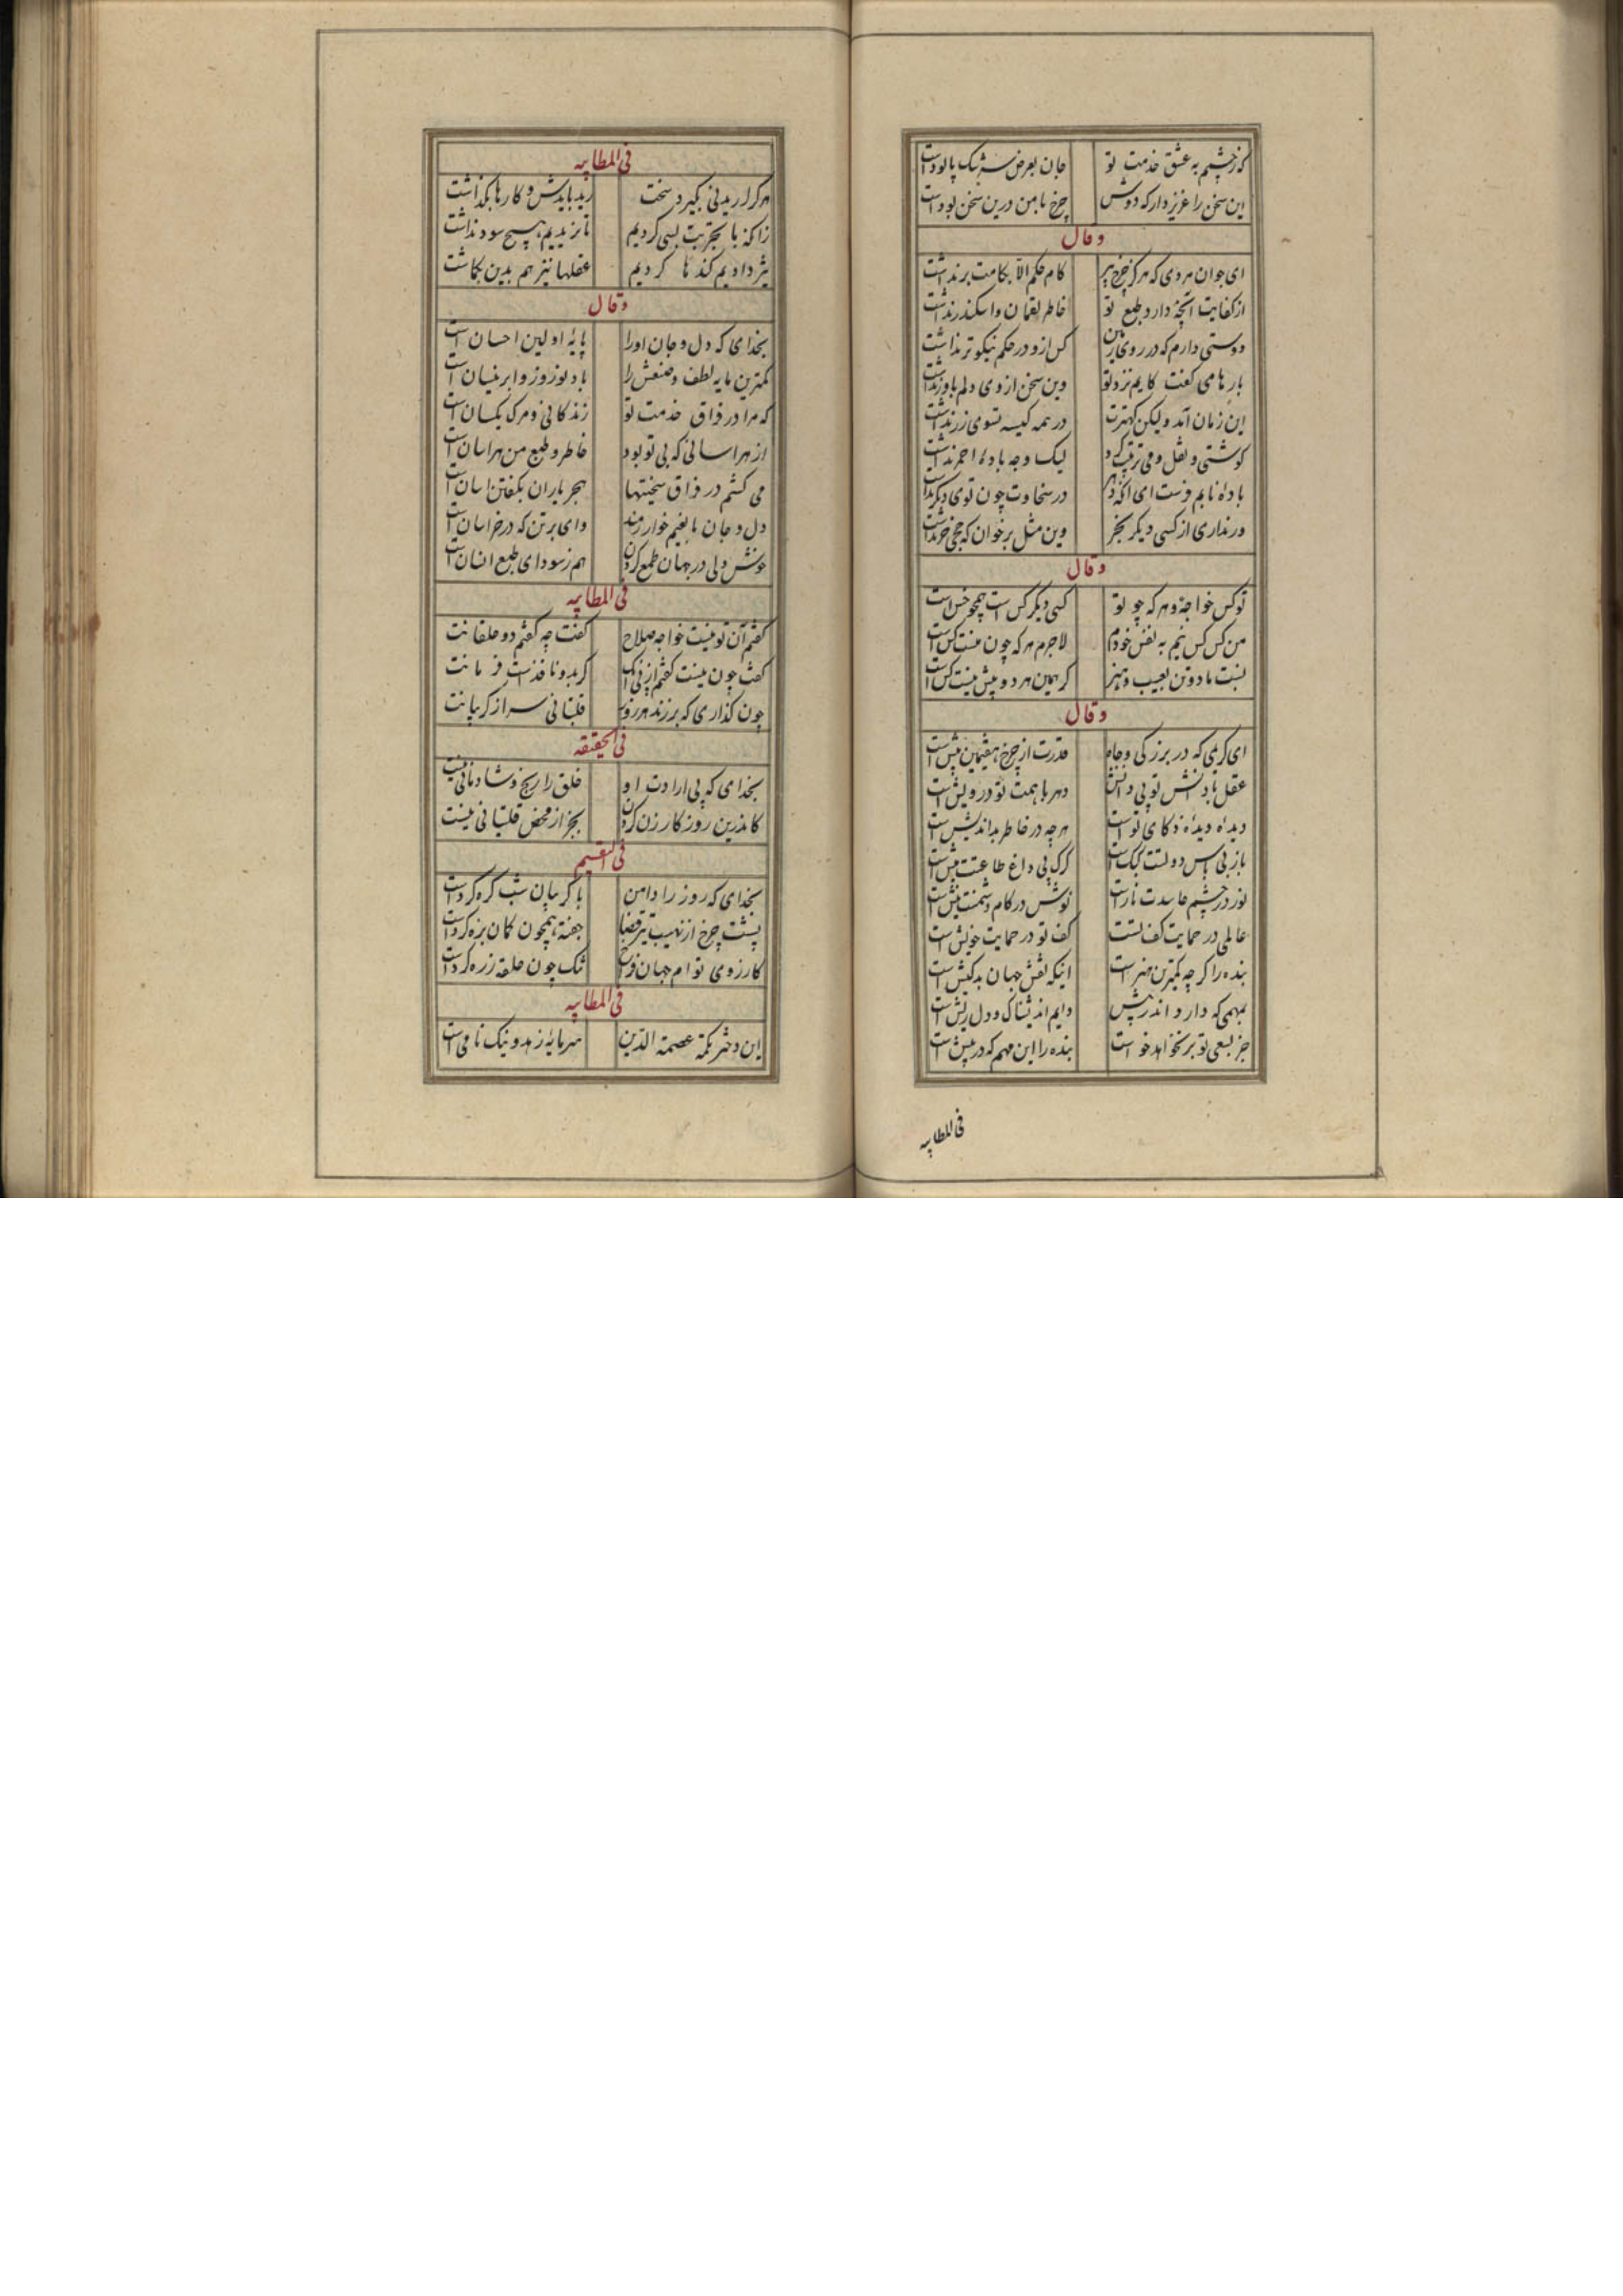 که ز چشمم به عشق خدمت تو جان بعرض سرشک پالودست
این سخن را عزیز دار که دوش چرخ با من درین سخن بودست
وقال
ای جوان مردی که هرگز چرخ پیر کام حکم الا بکامت برنداشت
از کفایت آنچه دارد طبع تو خاطر لقمان و اسکندر نداشت
دوستی دارم که در روی زمین کس ازو در حکم نیکوتر نداشت
بارها می گفت کایم نزد تو وین سخن از وی دلم باور نداشت
این زمان آمد ولیکن کهترت در همه کیسه تسوی زر نداشت
گوشتی و نقل و می ترتیب کرد لیک وجه بادهٔ احمر نداشت
بادهٔ نابم فرست ای آنکه دهر در سخاوت چون توی دیگر نداشت
ور نداری از کسی دیگر بخر وین مثل برخوان که جحی خر نداشت
وقال
تو کس خواجهٔ و هر که چو تو کسی دیگر کس است همچو خس است
من کس کس نیم به نفس خودم لاجرم هر که چون منست کس است
نسبت ما دو تن بعیب و هنر گر همین هر دو بیش نیست بس است
وقال
ای کریمی که در بزرگی و جاه قدرت از چرخ هفتمین بیش است
عقل با دانش تو بی دانش دهر با همت تو درویش است
دیده دیدهٔ ذکای تو است هرچه در خاطر بداندیش است
باز بی باس دولتت کبک است گرگ بی داغ طاعتت میش است
نور در چشم حاسدت نار است نوش در کام دشمنت نیش است
عالمی در حمایت کف تست کف تو در حمایت خویش است
بنده را گرچه کمترین هنر است اینکه نقش جهان بدکیش است
بمهمی که دارد اندر پیش دایم اندیشناک و دل ریش است
جز بسعی تو برنخواهد خواست بنده را این مهم که در پیش است
فی المطایبه
فی المطایبه
هر کرا ریدنی بگیرد سخت رید بایدش و کارها بگذاشت
زانکه با تجربت بسی کردیم تا نریدیم هیچ سود نداشت
تیز دادیم گندها کردیم عقلها نیز هم بدین بگماشت
وقال
بخدای که دل و جان او را پایهٔ اولین احسان است
کمترین مایه لطف و صنعش را باد نوروز و ابر نیسان است
که مرا در فراق خدمت تو زندگانی و مرگ یکسان است
از هراسانی که بی تو بود خاطر و طبع من هراسان است
می کشم در فراق سختیها هجر یاران بگفتن آسان است
دل و جان با بغیم خوارزمند وای بر تن که در خراسان است
خوش دلی در جهان طمع کردن هم ز سودای طبع انسان است
فی المطایبه
گفتم آن تو نیست خواجه صلاح گفت چه گفتم دو خلقانت
گفت چون نیست گفتم از پی آنک گر بدو نافذست فرمانت
چون گذاری که برزند هر روز قلتبانی سر از گریبانت
فی الحقیقه
بخدای که بی ارادت او خلق را رنج و شادمانی نیست
کاندرین روزگار زن کردن بجز از محض قلتبانی نیست
فی القسم
بخدای که روز را دامن با گریبان شب گره کردست
پشت چرخ از نهیب تیر قضا جفته همچون کمان بزه کردست
کارزوی توام جهان فراخ تنگ چون حلقه زره کردست
فی المطایبه
این دختر نکتهٔ عصمة الدین سرمایهٔ زهد و نیک نامی است